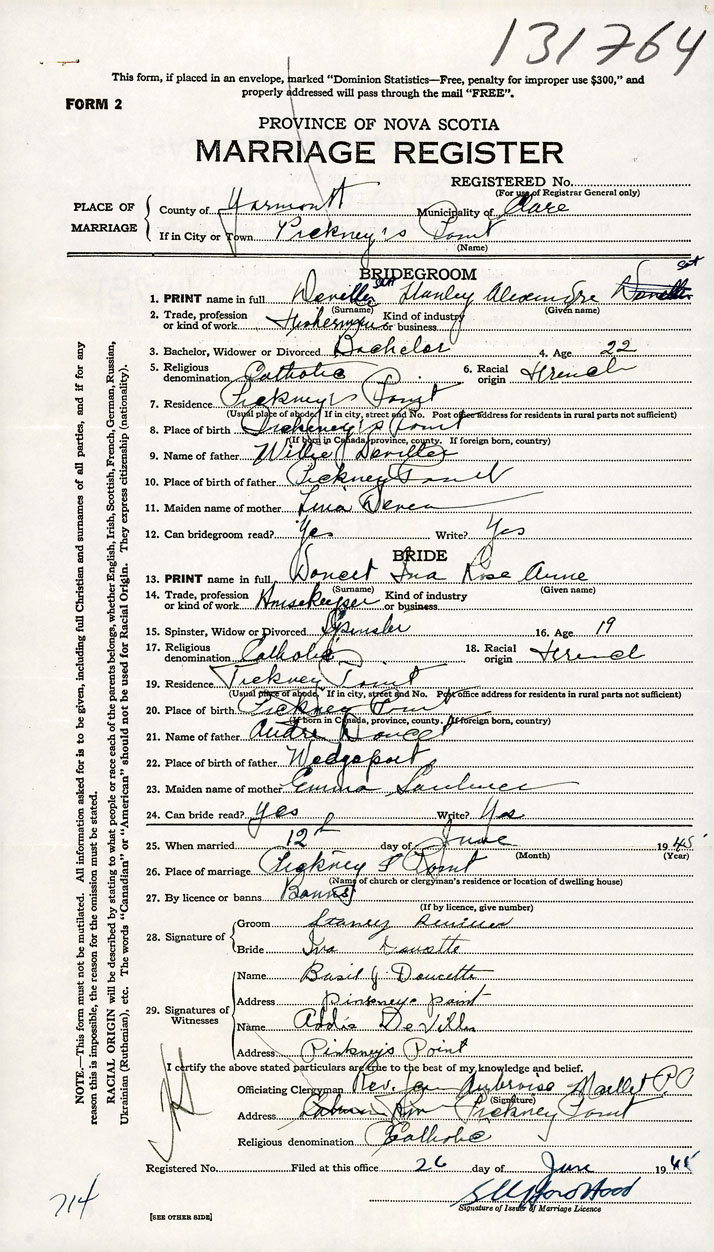 131764
This form, if placed in an envelope, marked "Dominion Statistics—Free, penalty for improper use $300," and
properly addressed will pass through the mail "FREE".
FORM 2
PROVINCE OF NOVA SCOTIA
MARRIAGE REGISTER
REGISTERED No.
(For use of Registrar General only)
PLACE OF MARRIAGE
County of Yarmouth Municipality of Clare
If in City or Town Pickney's Point
(Name)
BRIDEGROOM
1. PRINT name in full Deviller Stanley Alexandre
(Surname) (Given name)
2. Trade, profession or kind of work Fisherman Kind of industry or business
3. Bachelor, Widower or Divorced Bachelor 4. Age 22
5. Religious denomination Catholic 6. Racial origin French
7. Residence Pickney's Point
(Usual place of abode. If in city, street and No. Post office address for residents in rural parts not sufficient)
8. Place of birth Pickney's Point
(If born in Canada, province, county. If foreign born, country)
9. Name of father Willie Deviller
10. Place of birth of father Pickney Point
11. Maiden name of mother Lina
12. Can bridegroom read? Yes Write? Yes
BRIDE
13. PRINT name in full Doucet Iva Rose Anne
(Surname) (Given name)
14. Trade, profession or kind of work Housekeeper Kind of industry or business
15. Spinster, Widow or Divorced Spinster 16. Age 19
17. Religious denomination Catholic 18. Racial origin French
19. Residence Pickney Point
(Usual place of abode. If in city, street and No. Post office address for residents in rural parts not sufficient)
20. Place of birth Pickney Point
(If born in Canada, province, county. If foreign born, country)
21. Name of father André Doucet
22. Place of birth of father Wedgeport
23. Maiden name of mother Emma
24. Can bride read? Yes Write? Yes
25. When married 12th day of June 1945
(Month) (Year)
26. Place of marriage Pickney's Point
(Name of church or clergyman's residence or location of dwelling house)
27. By licence or banns Banns
(If by licence, give number)
28. Signature of
Groom Stanley
Bride Iva Doucette
29. Signatures of Witnesses
Name Basil J. Doucette
Address pinkneys point
Name Addie DeViller
Address Pinkney's Point
I certify the above stated particulars are true to the best of my knowledge and belief.
Officiating Clergyman Rev. Jean Ambroise Maillet P.P.
(Signature)
Address Pickney Point
Religious denomination Catholic
Registered No. Filed at this office 26 day of June 1945
Signature of Issuer of Marriage Licence
[SEE OTHER SIDE]
714
NOTE.—This form must not be mutilated. All information asked for is to be given, including full Christian and surnames of all parties, and if for any
reason this is impossible, the reason for the omission must be stated.
RACIAL ORIGIN will be described by stating to what people or race each of the parents belongs, whether English, Irish, Scottish, French, German, Russian,
Ukrainian (Ruthenian), etc. The words "Canadian" or "American" should not be used for Racial Origin. They express citizenship (nationality).